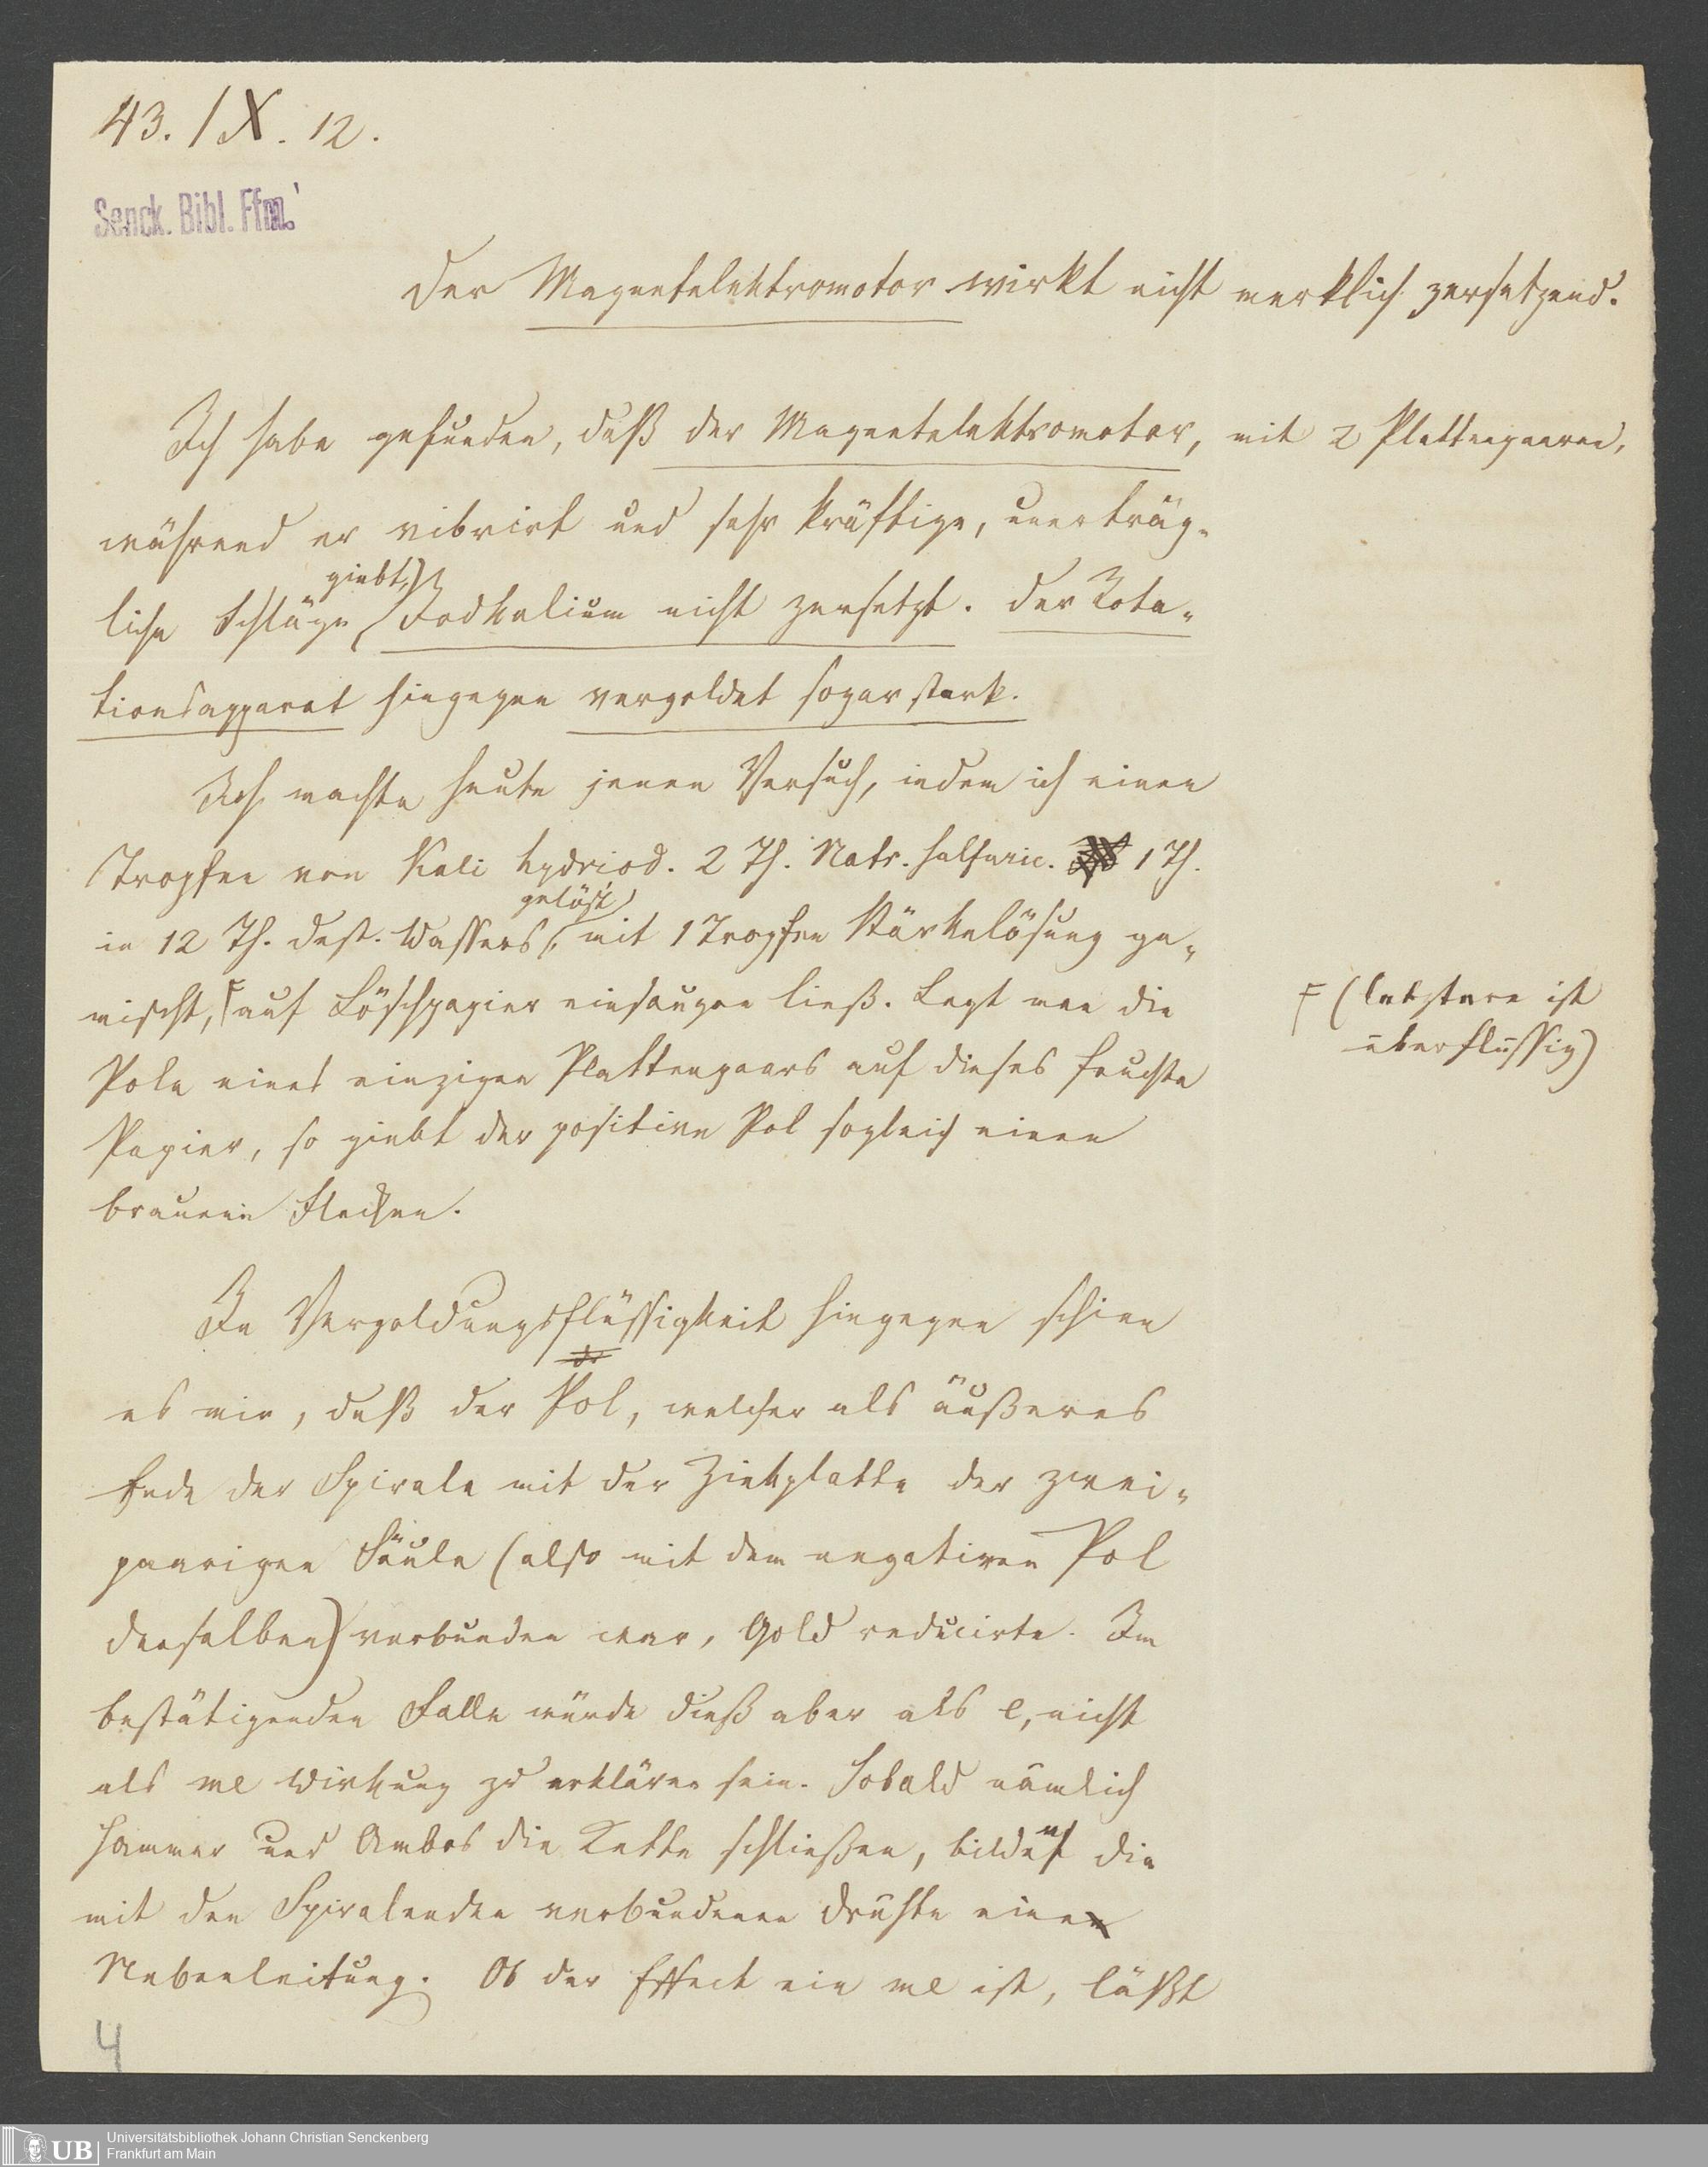 43. IX. 12.
Senck. Bibl. Ffm.
Der Magnetelektromotor wirkt nicht merklich zersetzend.
Ich habe gefunden, daß der Magnetelektromotor, mit 2 Plattenpaaren,
während er vibrirt und sehr kräftige, unerträg-
liche Schläge giebt, Jodkalium nicht zersetzt. Der Rota-
tionsapparat hingegen vergoldet sogar stark.
Ich machte heute jenen Versuch, indem ich einen
Tropfen von Kali hydriod. 2 Th. Natr. sulfuric. 1 Th.
in 12 Th. dest. Wassers gelöst, mit 1 Tropfen Stärkelösung ge-
mischt, F auf Löschpapier einsaugen ließ. Legt man die
F (letztere ist
überflüssig)
Pole eines einzigen Plattenpaars auf dieses feuchte
Papier, so giebt der positive Pol sogleich einen
braunen Flecken.
In Vergoldungsflüssigkeit hingegen schien
es mir, daß der Pol, welcher als äußeres
Ende der Spirale mit der Zinkplatte der zwei-
paarigen Säule (also mit dem negativen Pol
derselben) verbunden war, Gold reducirte. Im
bestätigenden Falle würde dieß aber als e, nicht
als me Wirkung zu erklären sein. Sobald nämlich
Hammer und Ambos die Kette schließen, bilden die
mit den Spiralenden verbundenen Drähte eine
Nebenleitung. Ob der Effect ein me ist, läßt
4
UB Universitätsbibliothek Johann Christian Senckenberg
Frankfurt am Main